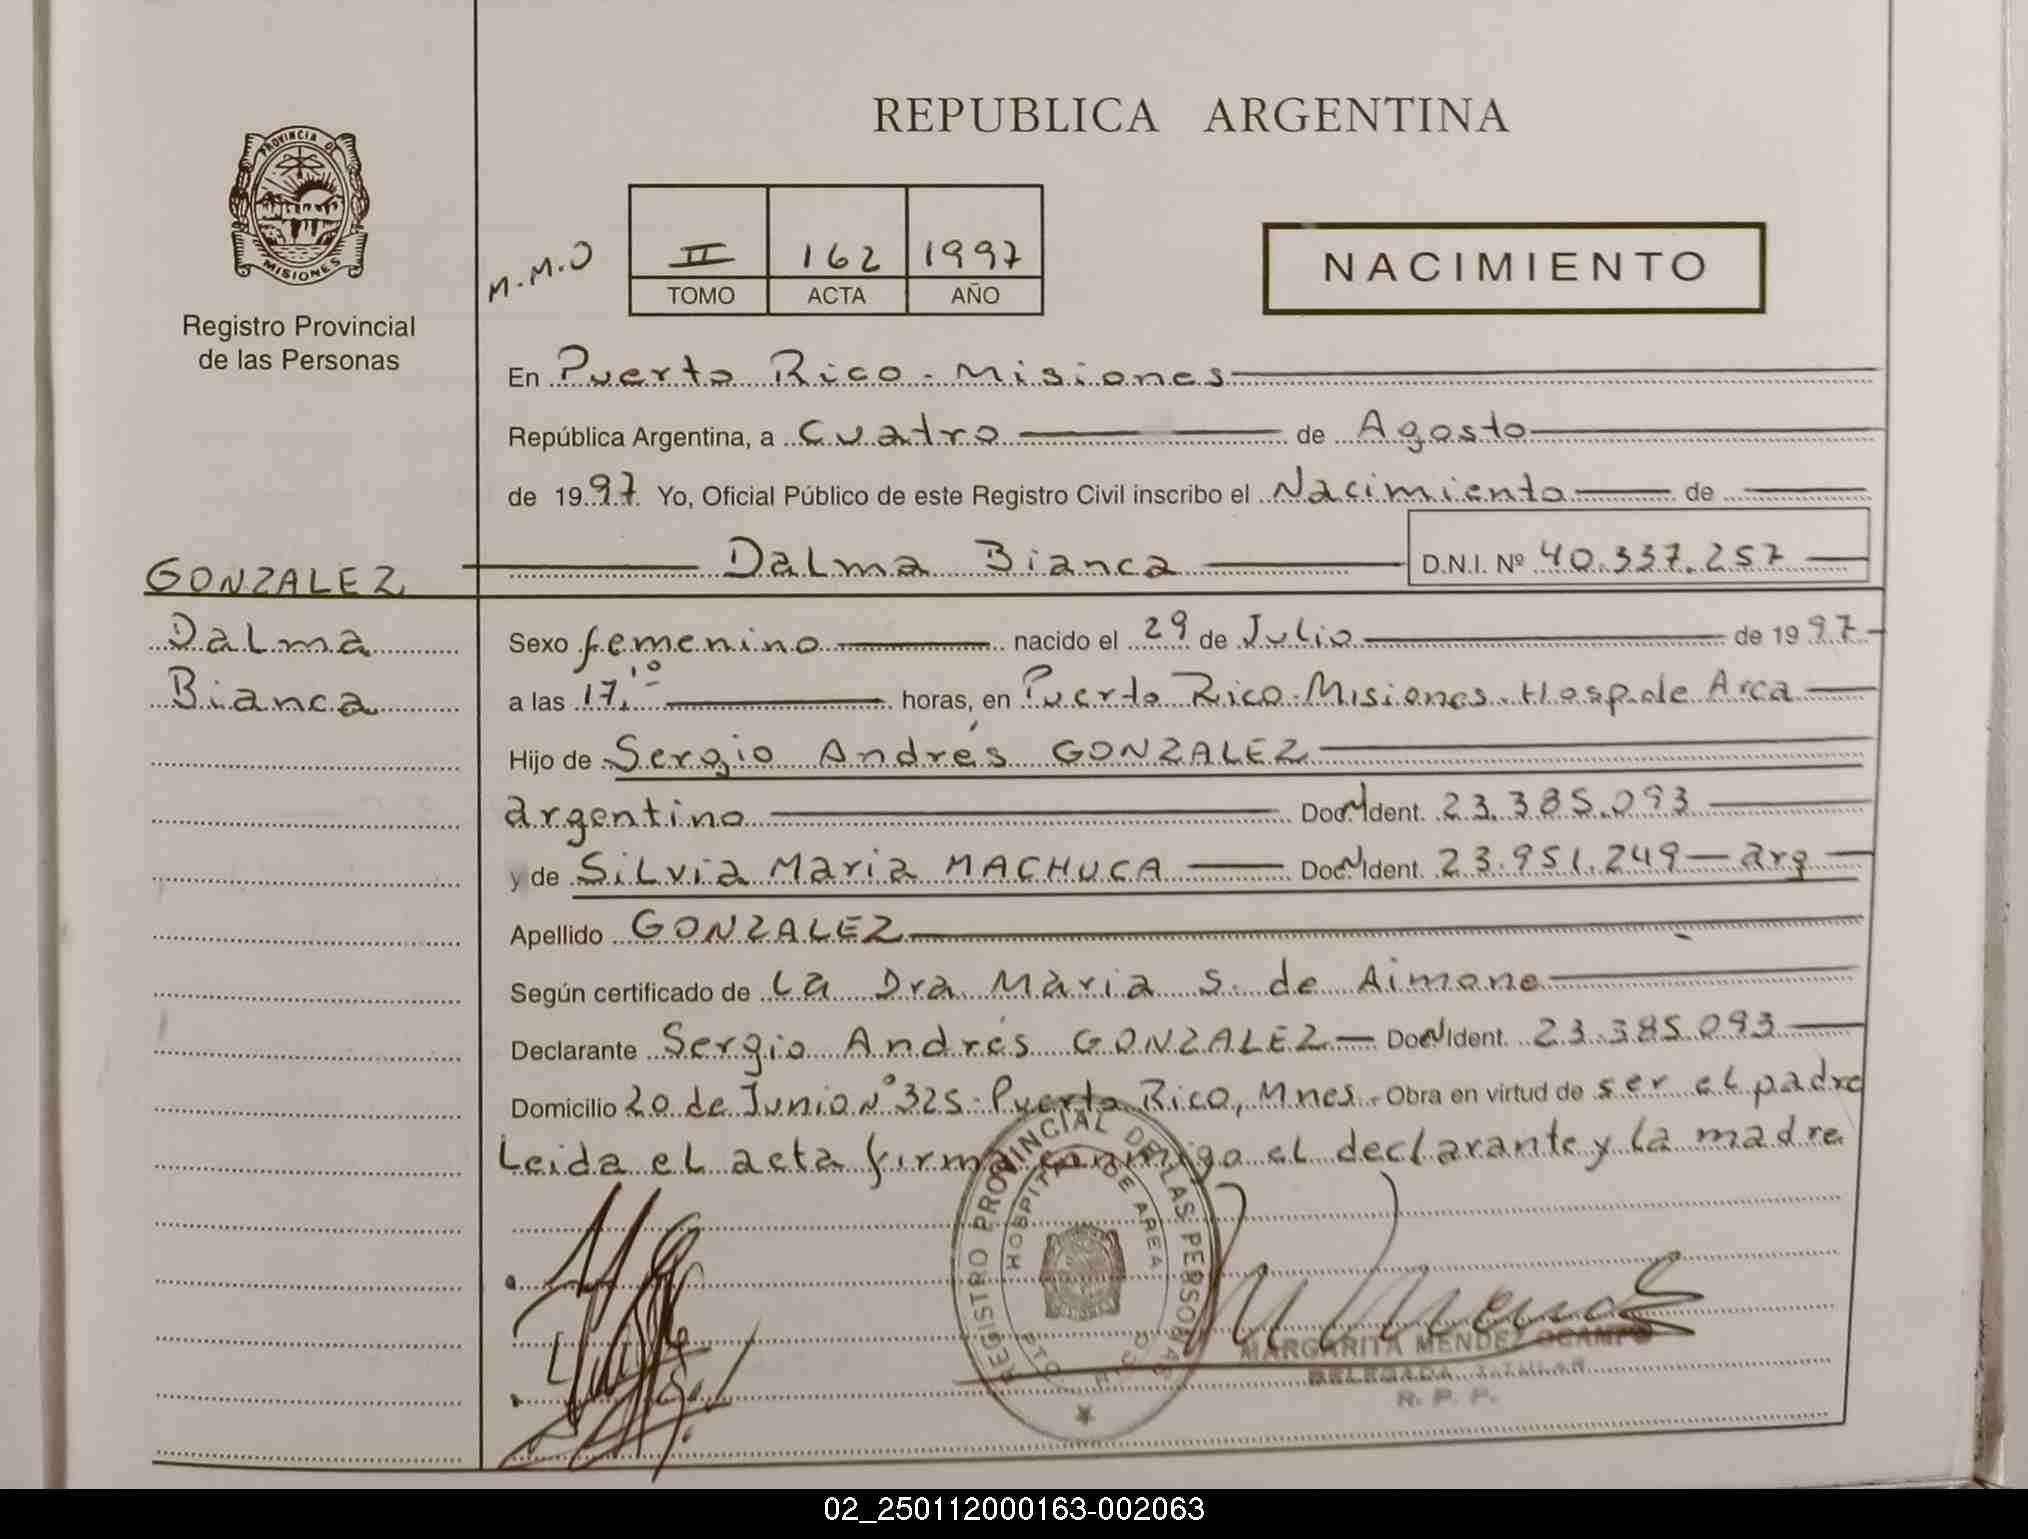 REPUBLICA ARGENTINA
PROVINCIA DE
MISIONES
Registro Provincial
de las Personas
M.M.O
II 162 1997
TOMO ACTA AÑO
NACIMIENTO
En Puerto Rico - Misiones
República Argentina, a Cuatro de Agosto
de 1997 Yo, Oficial Público de este Registro Civil inscribo el Nacimiento de
Dalma Bianca D.N.I. Nº 40.337.257
GONZALEZ
Dalma
Bianca
Sexo femenino nacido el 29 de Julio de 1997
a las 17,10 horas, en Puerto Rico-Misiones-Hosp.de Area
Hijo de Sergio Andrés GONZALEZ
argentino Doc. N Ident. 23.385.093
y de Silvia Maria MACHUCA Doc. N Ident. 23.951.249 - arg
Apellido GONZALEZ
Según certificado de La Dra Maria S. de Aimone
Declarante Sergio Andrés GONZALEZ Doc. N Ident. 23.385.093
Domicilio 20 de Junio Nº 325-Puerto Rico, Mnes.- Obra en virtud de ser el padre
Leida el acta firma conmigo el declarante y la madre
REGISTRO PROVINCIAL DE LAS PERSONAS
HOSPITAL DE AREA
PTO. RICO
MARGARITA MENDEZ OCAMPO
DELEGADA TITULAR
R. P. P.
02_250112000163-002063